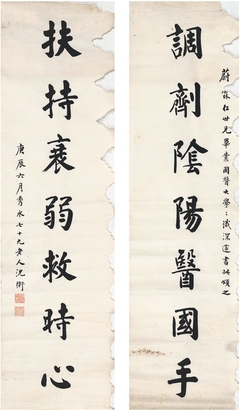 調劑陰陽醫國手
蔚霖仁世兄畢業國醫大學
學識深邃書此頌之
扶持衰弱救時心
庚辰六月秀水七十九老人沈衛